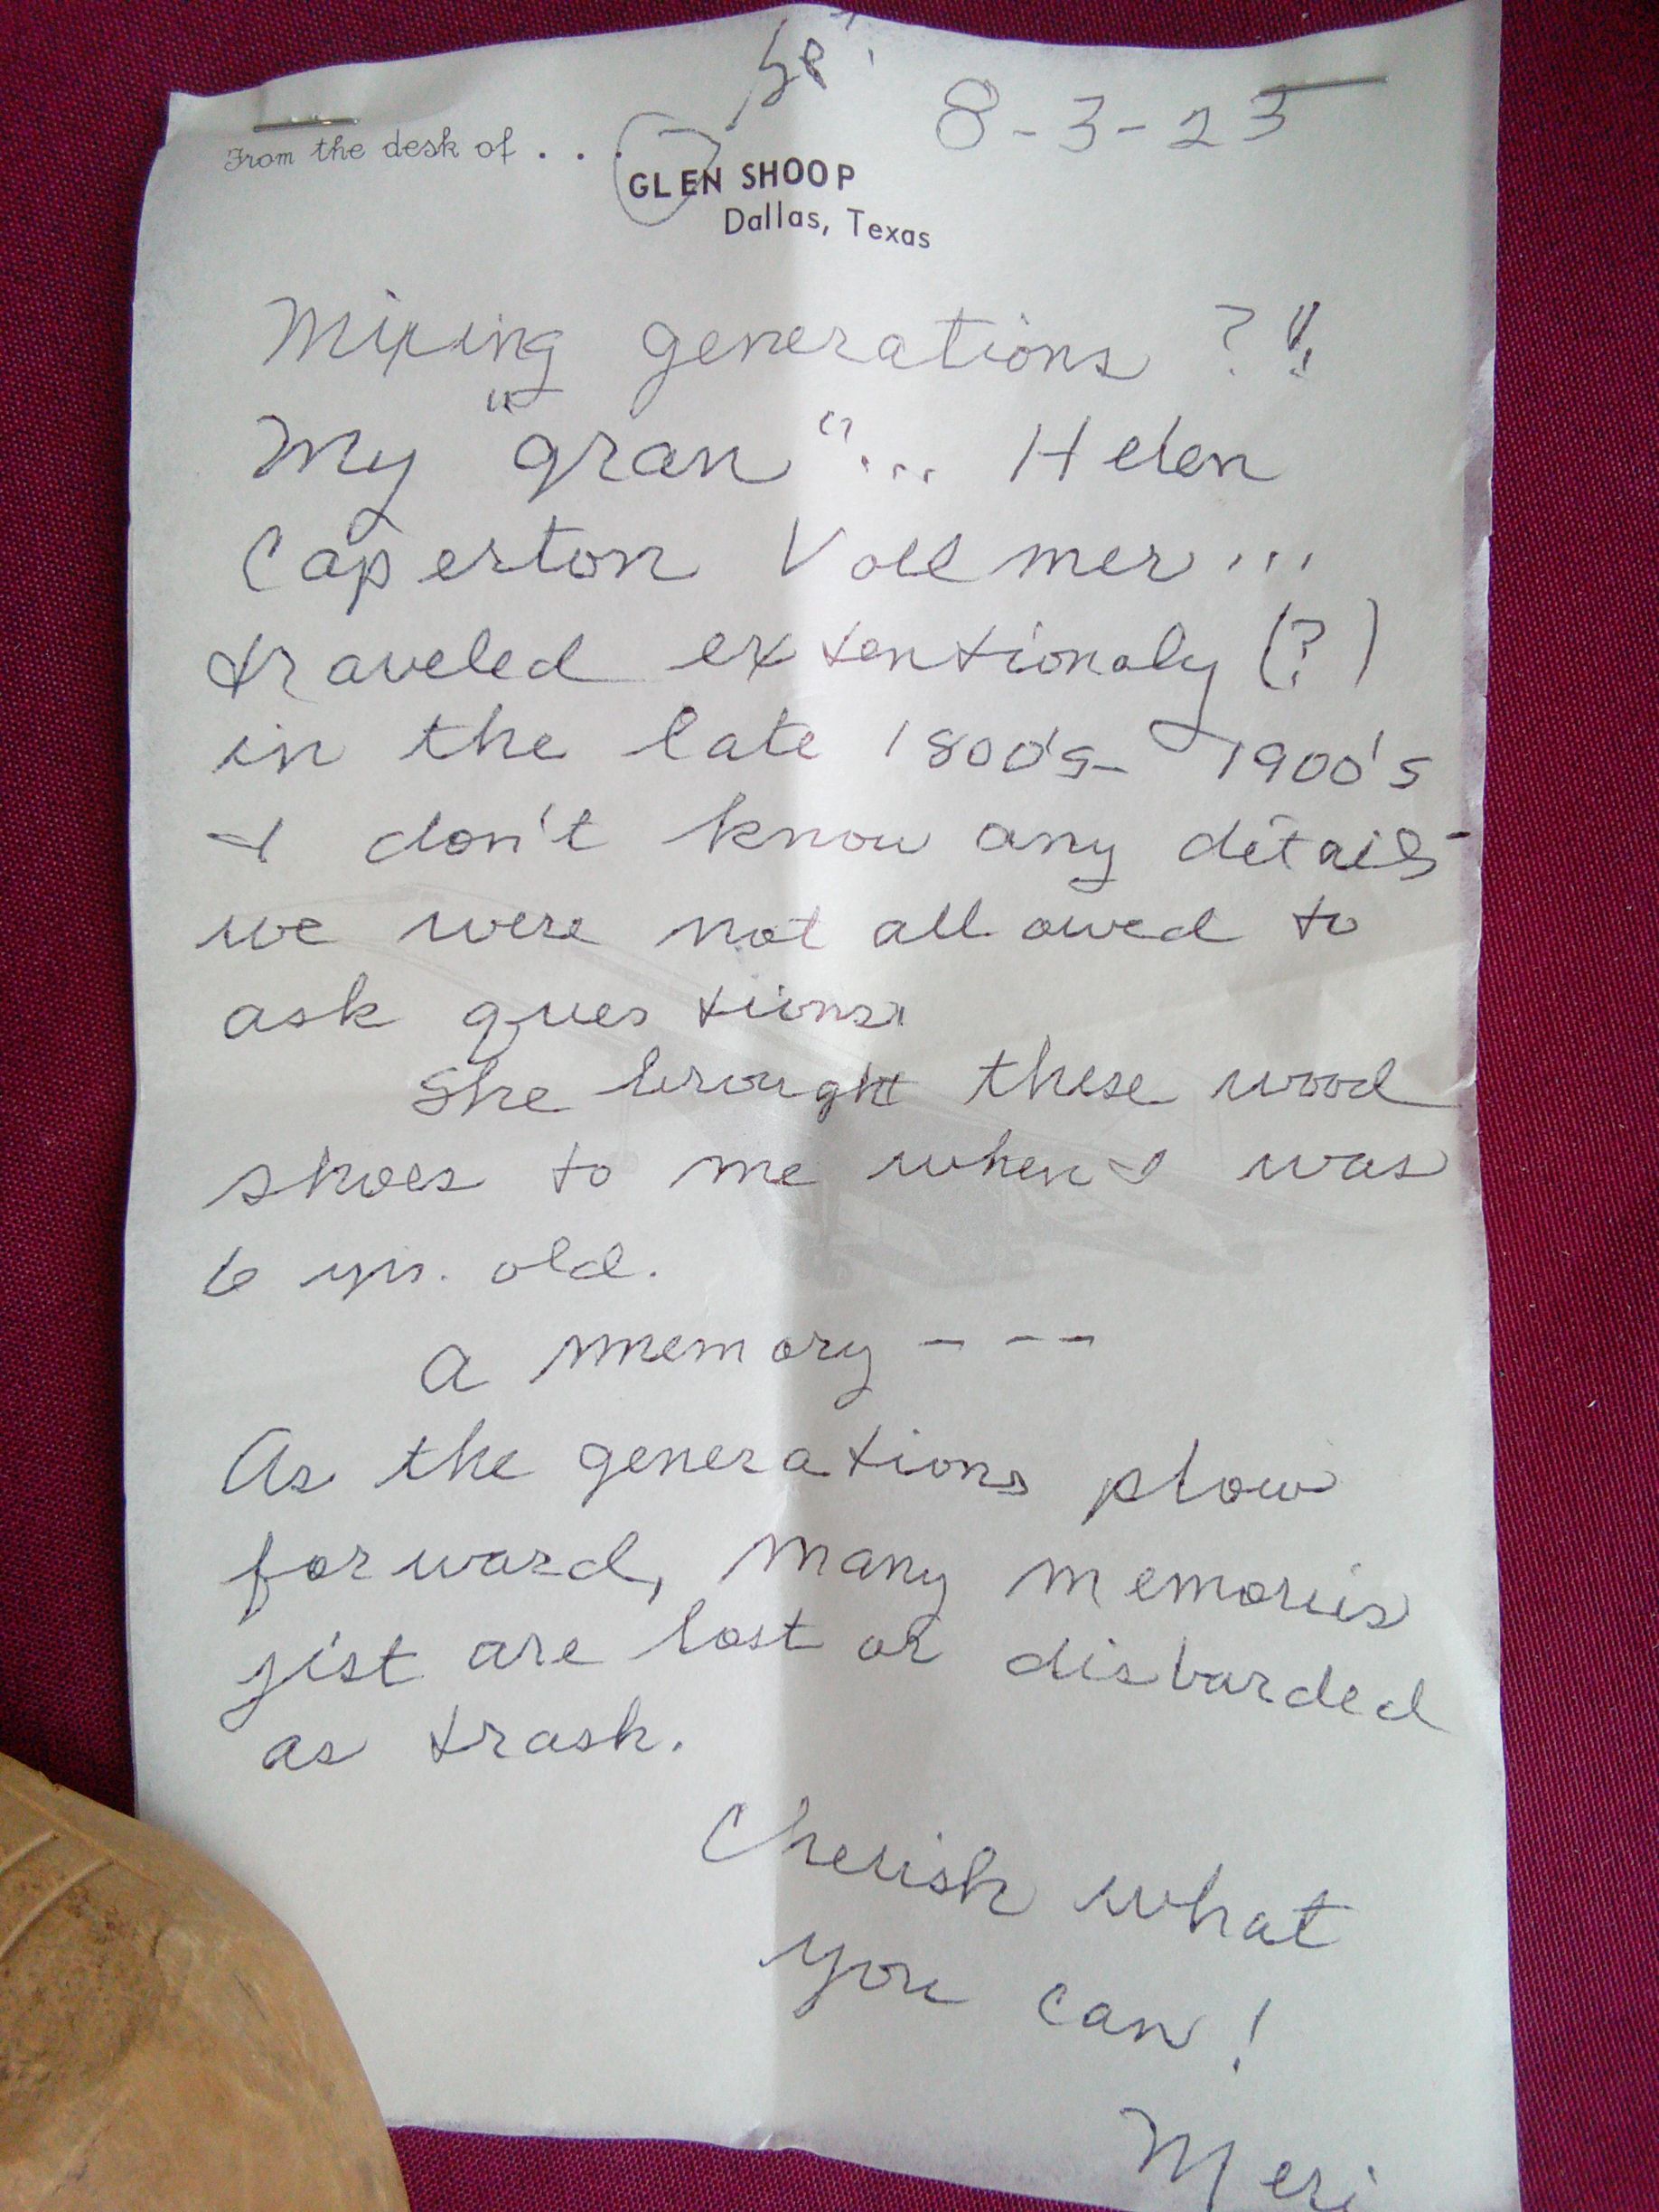 8-3-23
From the desk of . . .
GLEN SHOOP
Dallas, Texas
Mixing generations ?!!
My "gran"... Helen
Caperton Vollmer...
traveled extentionaly (?)
in the late 1800's - 1900's
I don't know any details
we were not allowed to
ask questions.
She brought these wood
shoes to me when I was
6 yrs. old.
A memory - - -
As the generations plow
forward, many memories
jist are lost or disbarded
as trash.
Cherish what
you can!
Meri